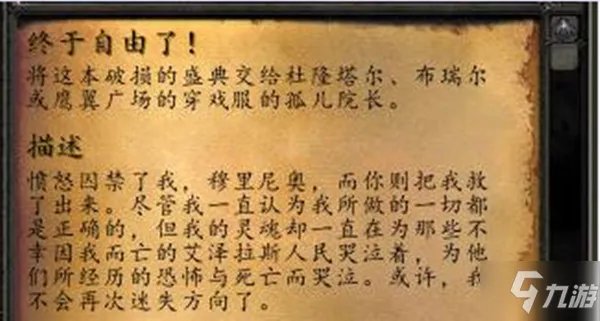 终于自由了！
将这本破损的盛典交给杜隆塔尔、布瑞尔
或鹰翼广场的穿戏服的孤儿院长。
描述
愤怒囚禁了我，穆里尼奥，而你则把我救
了出来。尽管我一直认为我所做的一切都
是正确的，但我的灵魂却一直在为那些不
幸因我而亡的艾泽拉斯人民哭泣着，为他
们所经历的恐怖与死亡而哭泣。或许，我
不会再次迷失方向了。
九游